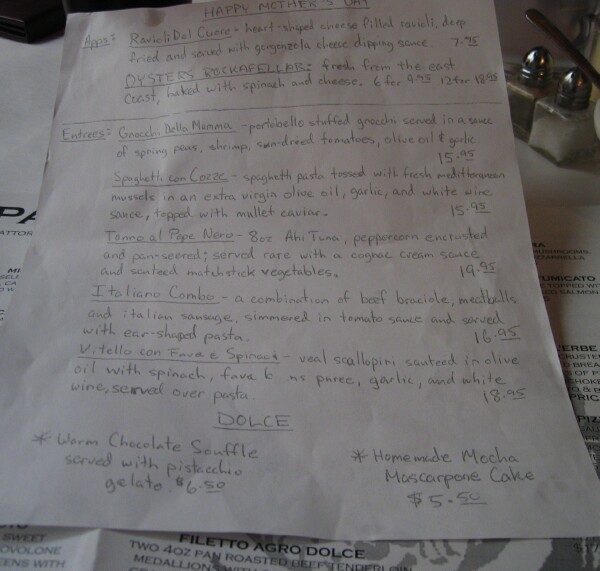 HAPPY MOTHER'S DAY
Apps: Ravioli Del Cuore - heart-shaped cheese filled ravioli, deep
fried and served with gorgonzola cheese dipping sauce. 7.95
OYSTERS ROCKAFELLAR: fresh from the east
coast, baked with spinach and cheese. 6 for 9.95 12 for 18.95
Entrees: Gnocchi Della Mamma - portobello stuffed gnocchi served in a sauce
of spring peas, shrimp, sun-dried tomatoes, olive oil & garlic
15.95
Spaghetti con Cozze - spaghetti pasta tossed with fresh mediterranean
mussels in an extra virgin olive oil, garlic, and white wine
sauce, topped with mullet caviar. 15.95
Tonno al Pepe Nero - 8oz Ahi Tuna, peppercorn encrusted
and pan-seered; served rare with a cognac cream sauce
and sauteed matchstick vegetables. 19.95
Italiano Combo - a combination of beef braciole, meatballs
and italian sausage, simmered in tomato sauce and served
with ear-shaped pasta. 16.95
Vitello con Fava e Spinaci - veal scallopini sauteed in olive
oil with spinach, fava puree, garlic, and white
wine, served over pasta. 18.95
DOLCE
* Warm Chocolate Souffle
served with pistacchio
gelato. $6.50
* Homemade Mocha
Mascarpone Cake
$5.50
FUMICATO
SWEET
OVOLONE
FILETTO AGRO DOLCE
TWO 4OZ PAN ROASTED BEEF TENDERLOIN
MEDALLIONS